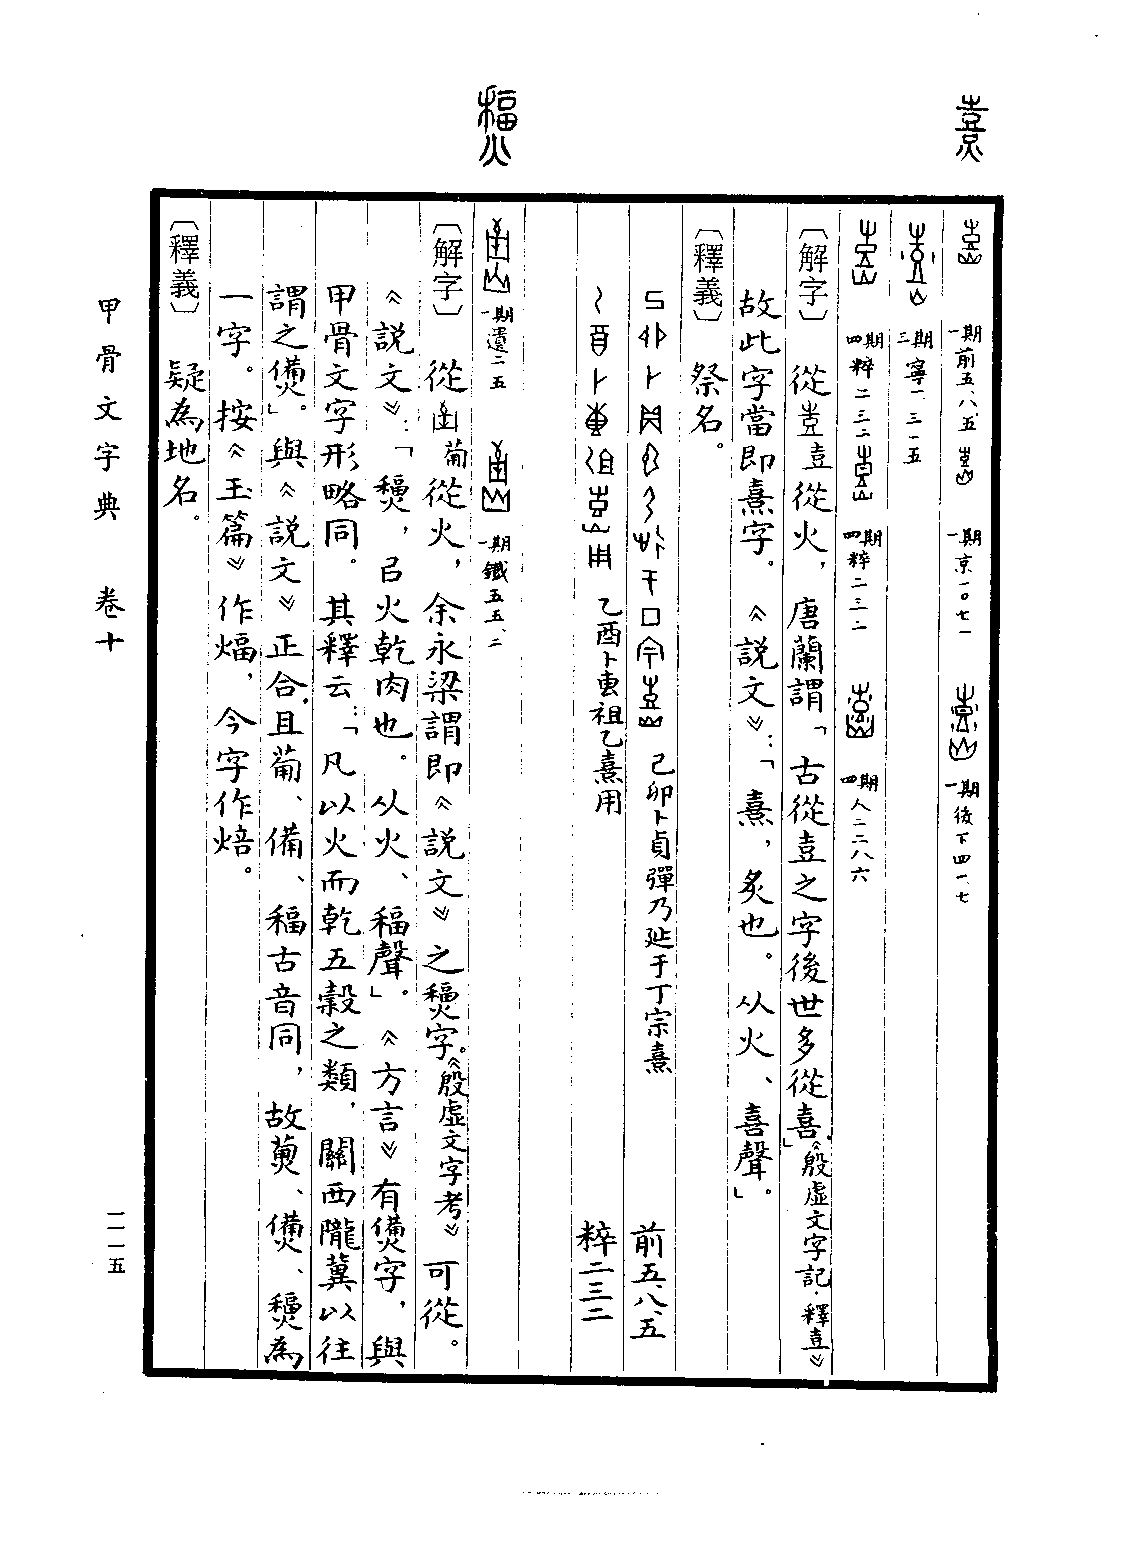 一期前五·八·五
一期京一〇七一
一期後下四一·七
三期寧一·三一五
四期粹二三二
四期粹二三二
四期人二二八六
〔解字〕從壴從火，唐蘭謂「古從壴之字後世多從喜」《殷虛文字記·釋壴》
故此字當即熹字。《說文》：「熹，炙也。从火、喜聲」。
〔釋義〕祭名。
己卯卜貞彈乃延于丁宗熹 前五·八·五
乙酉卜叀祖乙熹用 粹二三二
一期遺二五
一期鐵五五·二
〔解字〕從葡從火，余永梁謂即《說文》之𤏸字。《殷虛文字考》可從。
《說文》：「𤏸，㠯火乾肉也。从火、稫聲」。《方言》有㷶字，與
甲骨文字形略同。其釋云：「凡以火而乾五穀之類，關西隴冀以往
謂之㷶」。與《說文》正合，且葡、備、稫古音同，故、㷶、𤏸為
一字。按《玉篇》作煏，今字作焙。
〔釋義〕疑為地名。
甲骨文字典 卷十
一一一五